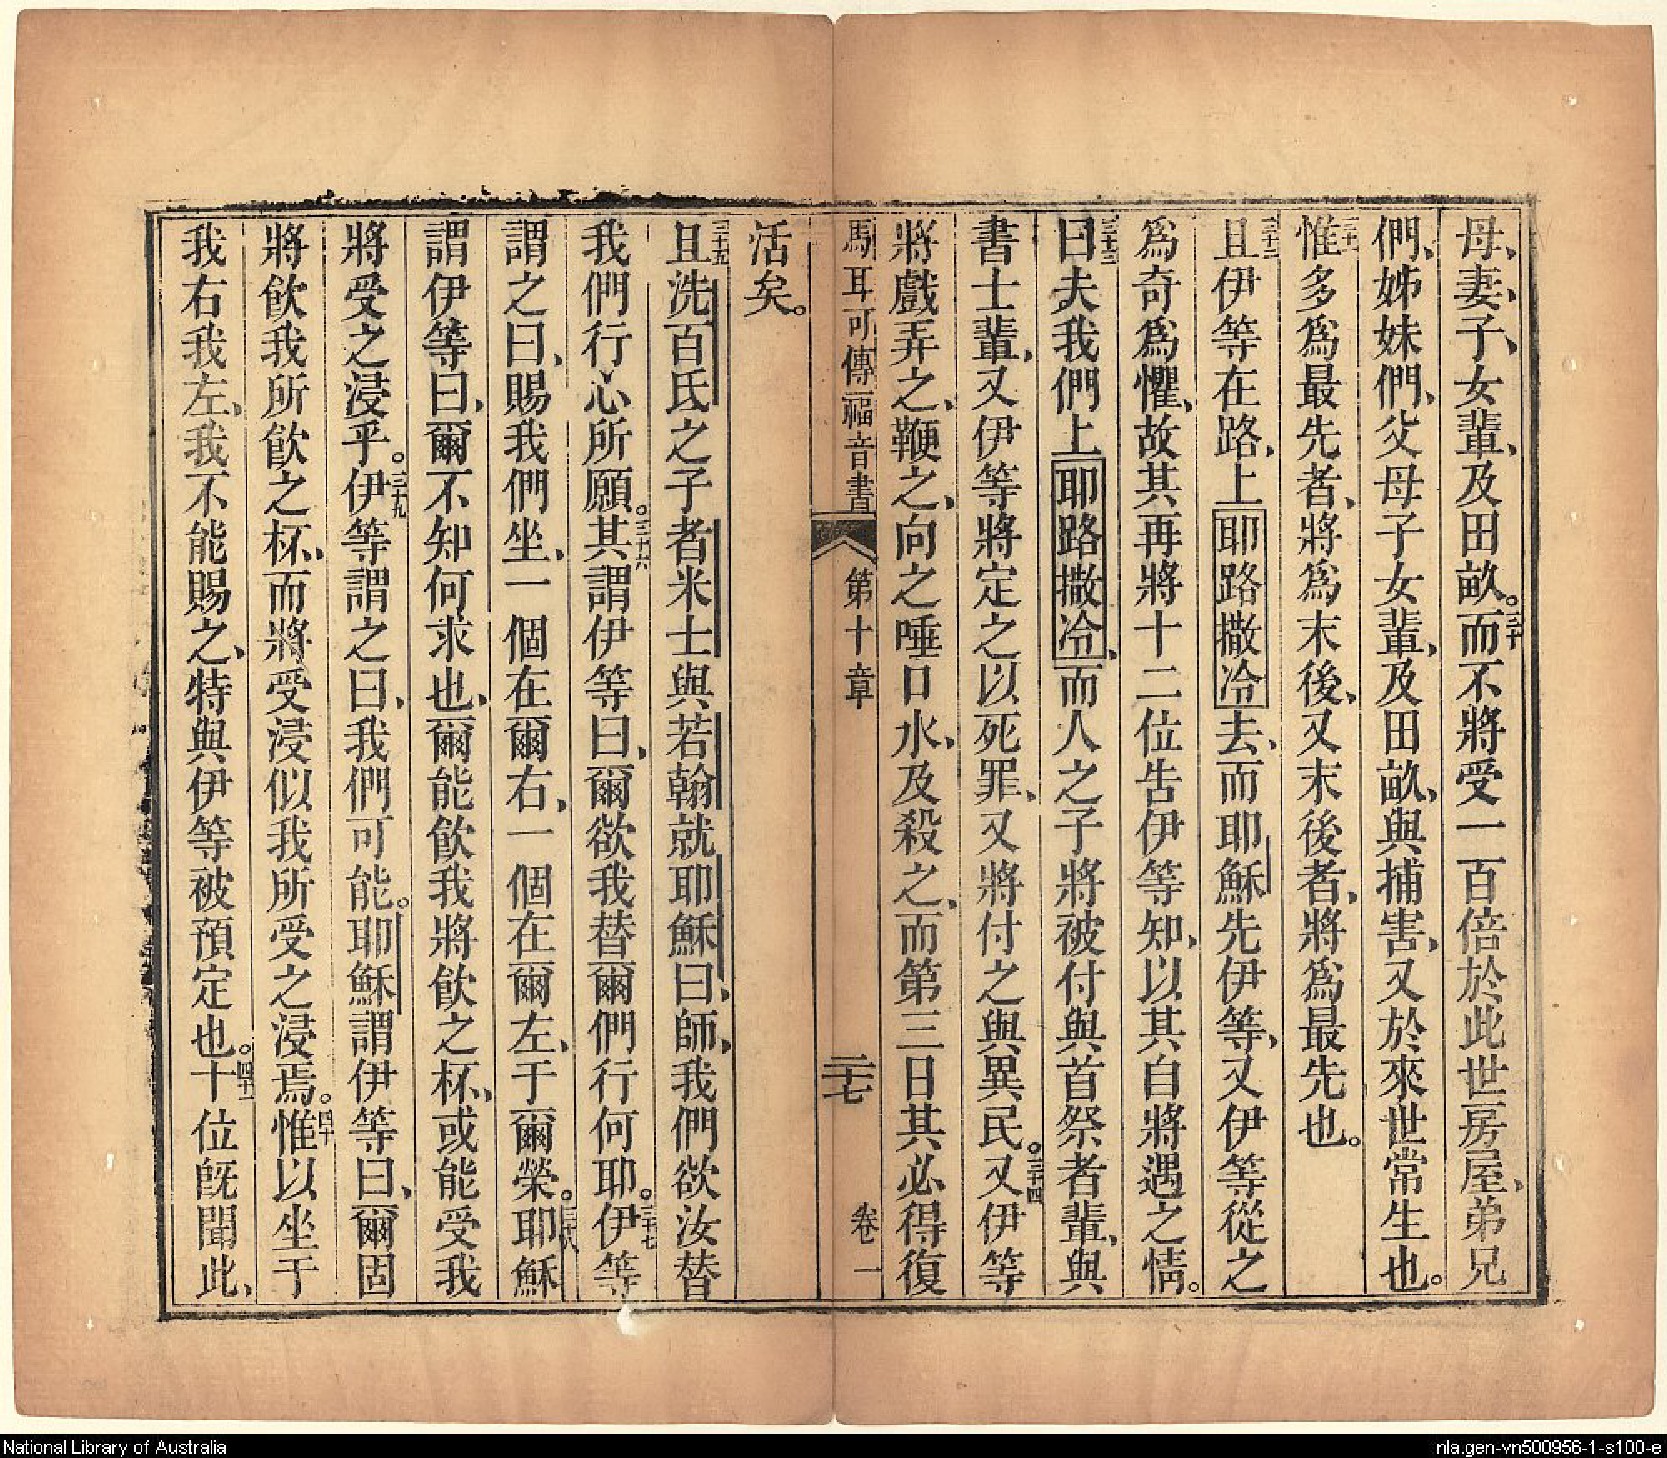 母、妻、子、女輩、及田畝。三十而不將受一百倍於此世房屋、弟兄
們、姊妹們、父母子女輩、及田畝、與捕害、又於來世常生也。
三一惟多爲最先者、將爲末後、又末後者、將爲最先也。
三十二且伊等在路、上耶路撒冷去、而耶穌先伊等、又伊等從之
爲奇爲懼、故其再將十二位告伊等知、以其自將遇之情。
三十三曰夫我們上耶路撒冷、而人之子將被付與首祭者輩、與
書士輩、又伊等將定之以死罪、又將付之與異民。三十四又伊等
將戲弄之、鞭之、向之唾口水、及殺之、而第三日其必得復
馬耳可傳福音書 第十章 二十七 卷一
活矣。
三十五且洗百氏之子者米士與若翰就耶穌曰、師、我們欲汝替
我們行心所願。三十六其謂伊等曰、爾欲我替爾們行何耶。三十七伊等
謂之曰、賜我們坐、一個在爾右、一個在爾左、于爾榮。三十八耶穌
謂伊等曰、爾不知何求也、爾能飲我將飲之杯、或能受我
將受之浸乎。三十九伊等謂之曰、我們可能。耶穌謂伊等曰、爾固
將飲我所飲之杯、而將受浸似我所受之浸焉。四十惟以坐于
我右我左、我不能賜之、特與伊等被預定也。四十一十位旣聞此、
National Library of Australia
nla.gen-vn500956-1-s100-e